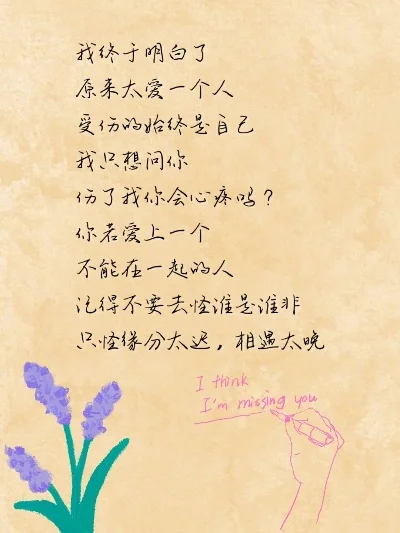 我终于明白了
原来太爱一个人
受伤的始终是自己
我只想问你
伤了我你会心疼吗？
你若爱上一个
不能在一起的人
记得不要去怪谁是谁非
只怪缘分太迟，相遇太晚
I think
I'm missing you